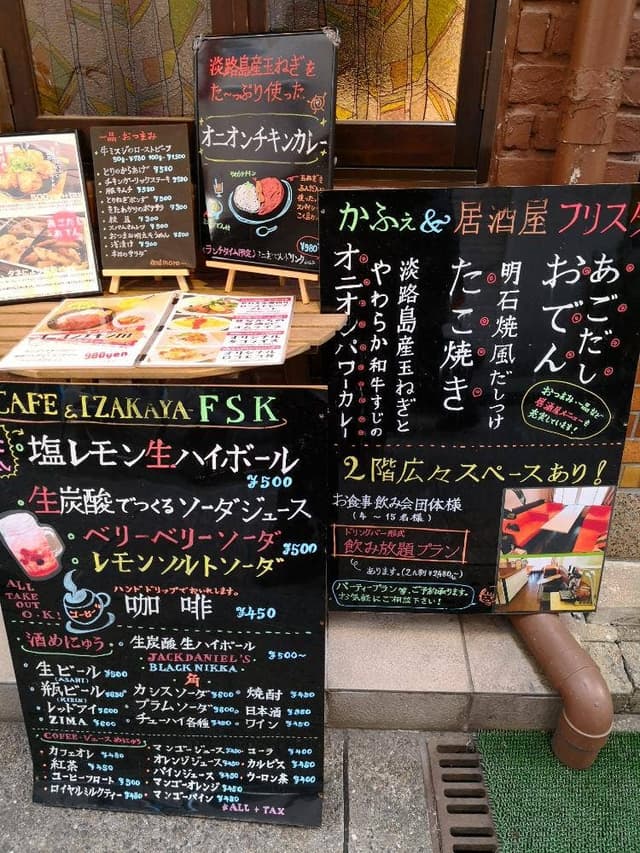 淡路島産玉ねぎを
た〜っぷり使った
オニオンチキンカレー
¥980
ランチタイム限定
一品・おつまみ
牛ミスジのローストビーフ
50g・¥780 100g・¥1,500
とりのからあげ ¥580
チキンガーリックステーキ ¥580
豚キムチ
とりねぎポンズ
枝豆 ¥300
おつまみ明太えりんぎ
浅漬け ¥300
本日のサラダ
and more
980yen
かふぇ&居酒屋フリスク
あごだし
おでん
明石焼風だしつけ
たこ焼き
淡路島産玉ねぎと
やわらか和牛すじの
オニオンパワーカレー
おつまみ一品など
居酒屋メニューも
充実しています!
2階広々スペースあり!
お食事飲み会団体様
(4〜15名様)
ドリンクバー形式
飲み放題プラン
あります。(2h制¥2480)
パーティープラン等、ご予約承ります。
お気軽にご相談下さい!
CAFE & IZAKAYA-FSK
塩レモン生ハイボール
¥500
生炭酸でつくるソーダジュース
ベリーベリーソーダ
¥500
レモンソルトソーダ
ALL
TAKE
OUT
O.K!
コーヒー
ハンドドリップでおいれします。
珈琲 ¥450
酒めにゅう
生炭酸 生ハイボール
JACKDANIEL'S
¥500〜
BLACKNIKKA
角
生ビール ¥500
(ASAHI)
瓶ビール ¥650
(KIRIN)
レッドアイ ¥600
ZIMA ¥600
カシスソーダ ¥600
プラムソーダ ¥600
チューハイ各種 ¥400
焼酎 ¥450
日本酒 ¥550
ワイン ¥450
COFFEE・ジュースめにゅう
カフェオレ ¥480
紅茶 ¥450
コーヒーフロート ¥500
ロイヤルミルクティー ¥480
マンゴージュース ¥450
オレンジジュース ¥450
パインジュース ¥450
マンゴーオレンジ ¥480
マンゴーパイン ¥480
コーラ ¥400
カルピス ¥450
ウーロン茶 ¥400
※ALL + TAX